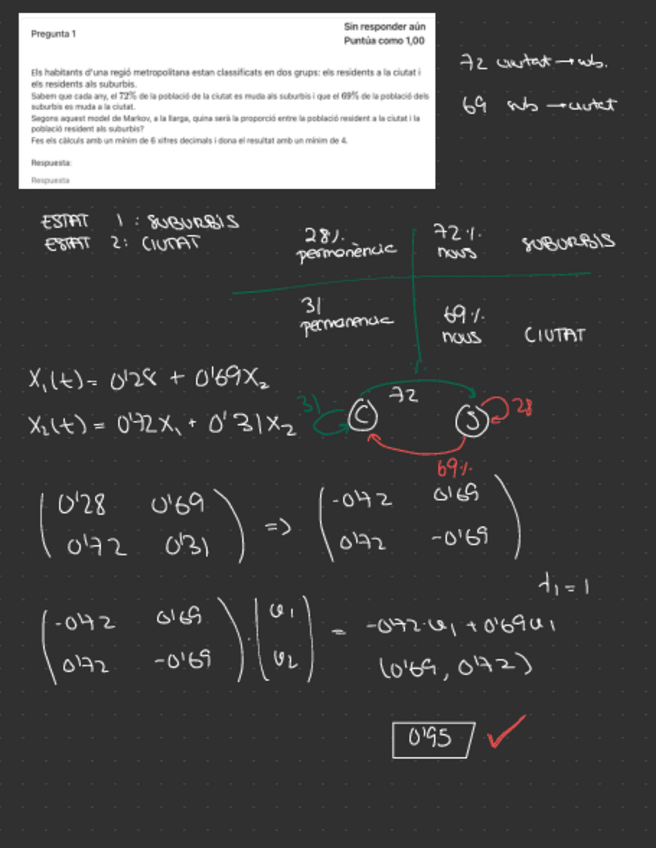 Pregunta 1
Sin responder aún
Puntúa como 1,00
Els habitants d'una regió metropolitana estan classificats en dos grups: els residents a la ciutat i
els residents als suburbis.
Sabem que cada any, el 72% de la població de la ciutat es muda als suburbis i que el 69% de la població dels
suburbis es muda a la ciutat.
Segons aquest model de Markov, a la llarga, quina serà la proporció entre la població resident a la ciutat i la
població resident als suburbis?
Fes els càlculs amb un mínim de 6 xifres decimals i dona el resultat amb un mínim de 4.
Respuesta:
Respuesta
72 ciutat → sub.
69 sub → ciutat
ESTAT 1 : SUBURBIS
ESTAT 2: CIUTAT
28%. permanència
72%. nous
SUBURBIS
31 permanencia
69%. nous
CIUTAT
X₁(t) = 0'28 + 0'69X₂
X₂(t) = 0'72X₁ + 0'31X₂
31 C 72 S 28
69%
( 0'28 0'69 ) => ( -0'72 0'69 )
( 0'72 0'31 ) ( 0'72 -0'69 )
λ₁ = 1
( -0'72 0'69 ) · ( v₁ ) = -0'72·v₁ + 0'69v₁
( 0'72 -0'69 ) ( v₂ ) (0'69, 0'72)
0'95 ✓